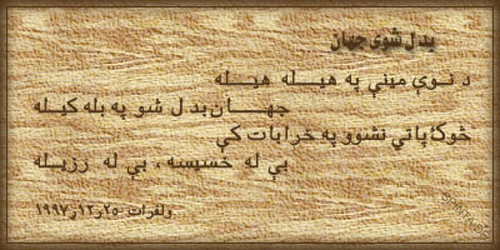 بدل شوی جهان
د نوې مينې په هيله هيله
جهان بدل شو په بله کيله
څوک پاتې نشوو په خرابات کې
بې له خسيسه ، بې له رزيله
ولفرات ۲۵ر۱۲ر۱۹۹۷